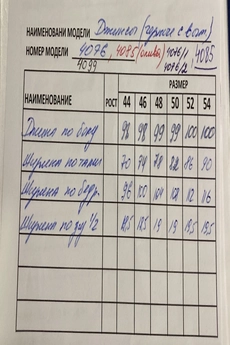 НАИМЕНОВАНИ МОДЕЛИ Джинсы
НОМЕР МОДЕЛИ 4076, 4075 4076/1 4085
4099 4076/2
НАИМЕНОВАНИЕ РОСТ РАЗМЕР
44 46 48 50 52 54
Длина по боку 98 98 99 99 100 100
Ширина по талии 70 74 78 82 86 90
Ширина по бедр. 96 100 104 108 112 116
Ширина по 1/2 18,5 18,5 19 19 19,5 19,5